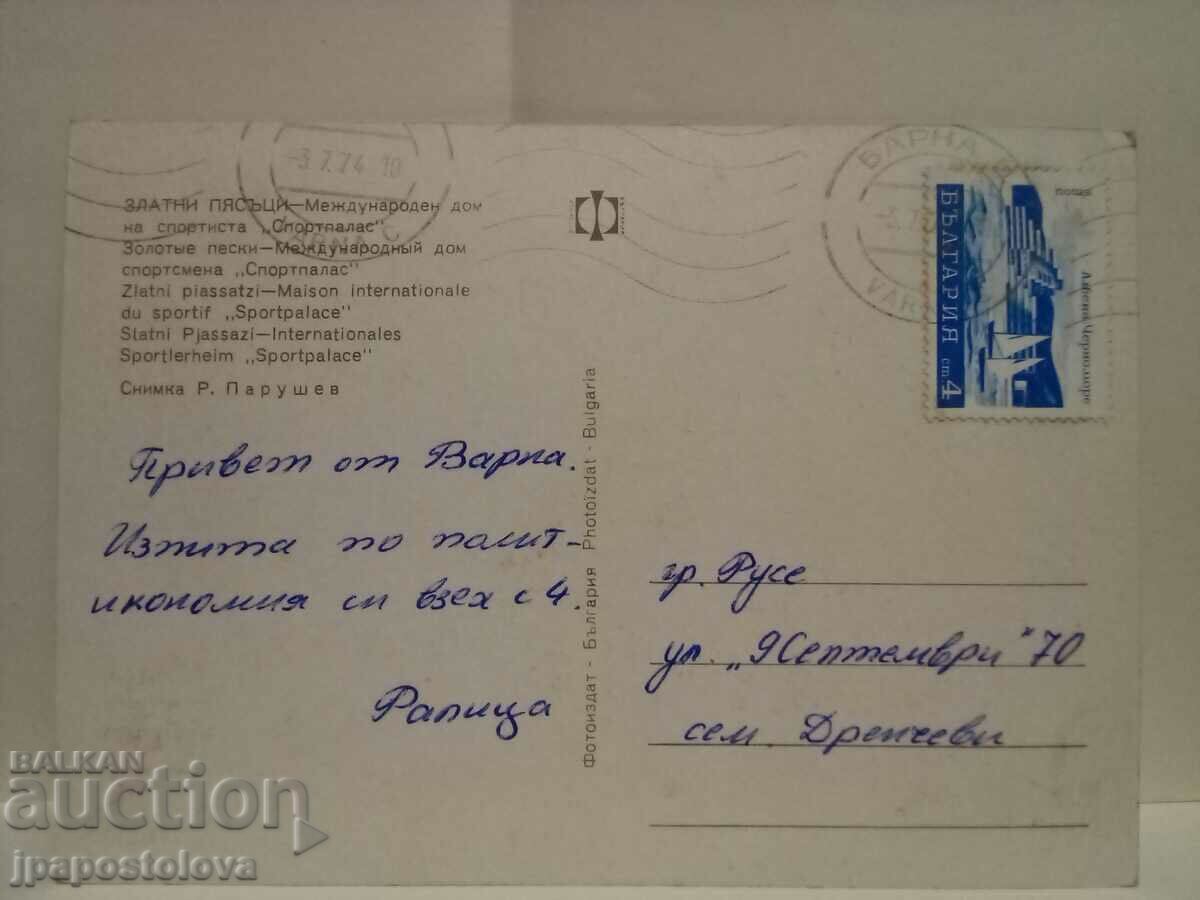 -3.7.74 19
VARNA C
ЗЛАТНИ ПЯСЪЦИ—Международен дом
на спортиста „Спортпалас"
Золотые пески—Международный дом
спортсмена „Спортпалас"
Zlatni piassatzi—Maison internationale
du sportif „Sportpalace"
Slatni Pjassazi—Internationales
Sportlerheim „Sportpalace"
Снимка Р. Парушев
Привет от Варна.
Изпита по полит-
икономия си взех с 4.
Ралица
Фотоиздат - България Photoizdat - Bulgaria
ВАРНА
VAR
поща
БЪЛГАРИЯ ст 4
Черноморе
гр. Русе
ул. „9 Септември" 70
сем. Дренчеви
BALKAN
auction
jpapostolova